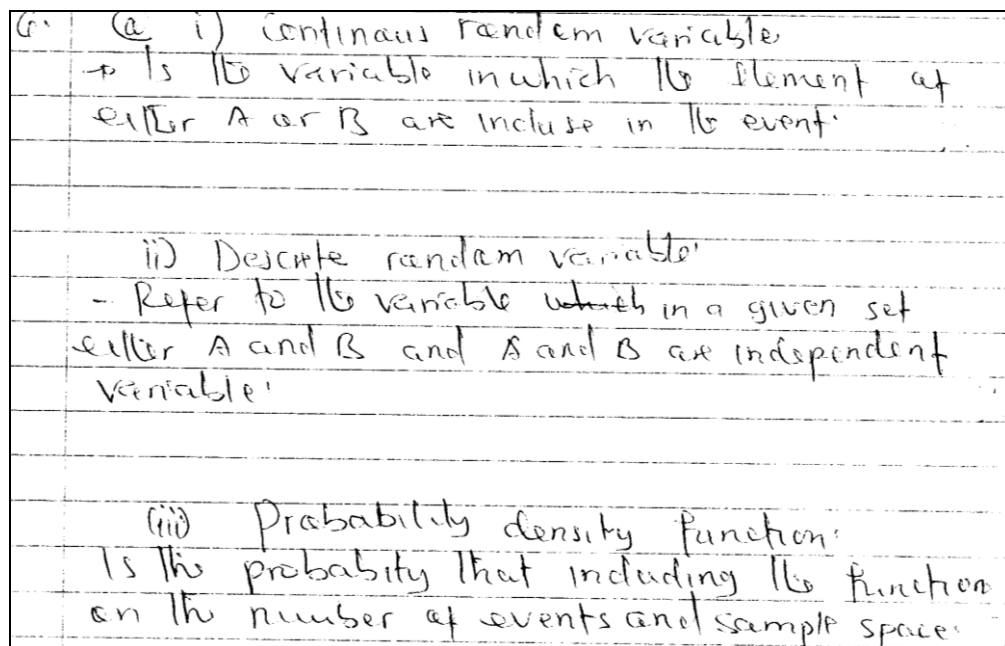 6. (a i) continaus random variable
→ Is the variable in which the Element of
either A or B are incluse in the event.
ii) Descrete random variable.
- Refer to the variable which in a given set
either A and B and A and B are independent
variable.
(iii) Probability density function.
Is the probabity that including the function
on the number of events and sample space.